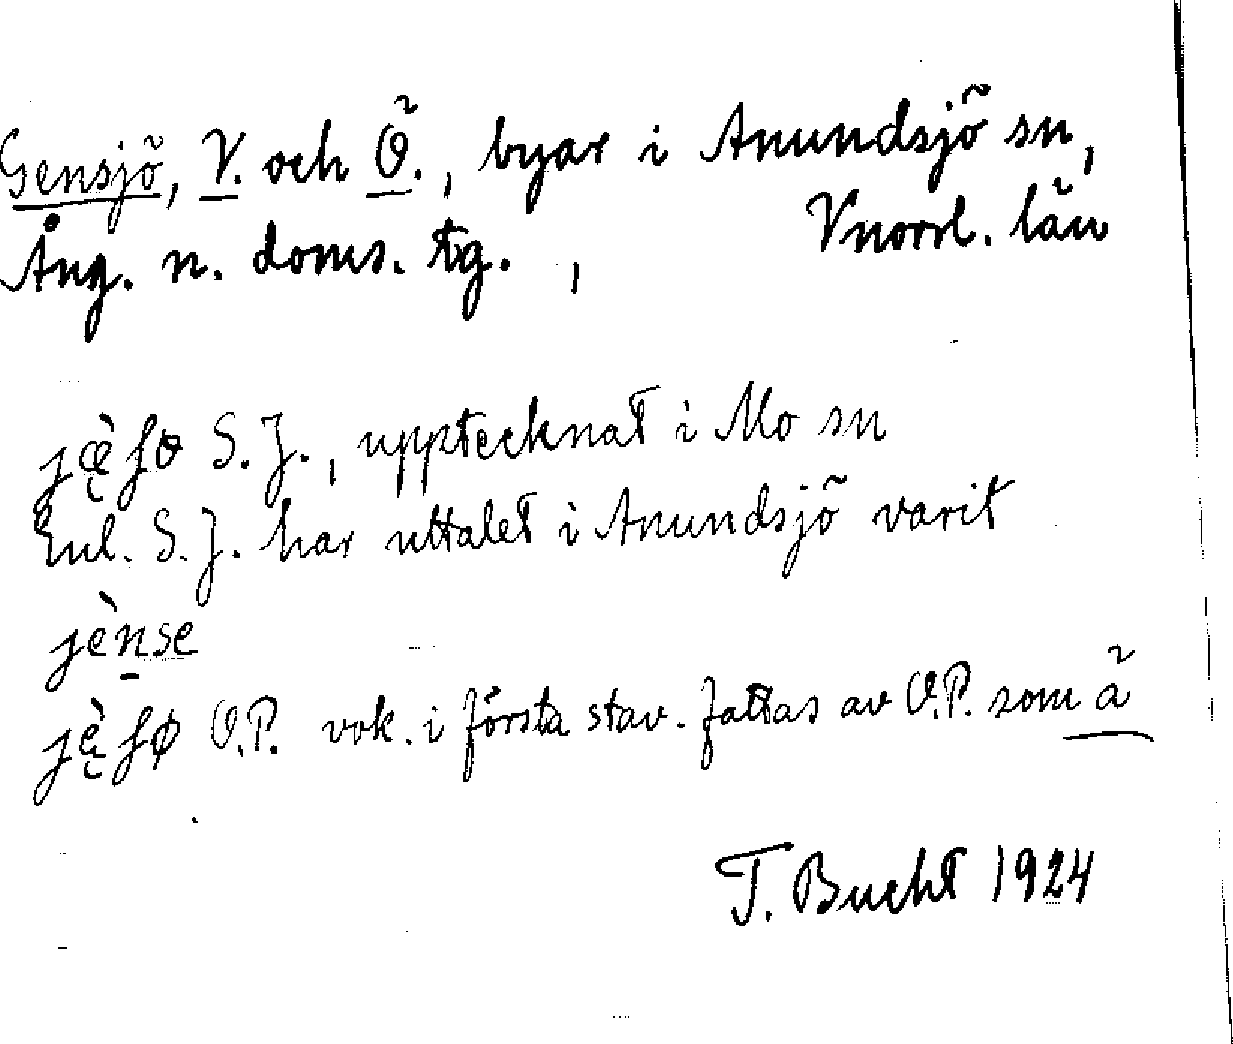 Gensjö, V. och Ö., byar i Anundsjö sn,
Ång. n. doms. tg., Vnorrl. län
S. J., upptecknat i Mo sn
Enl. S. J. har uttalet i Anundsjö varit
jènse
O.P. vok. i första stav. fattas av O.P. som ä
T. Bucht 1924